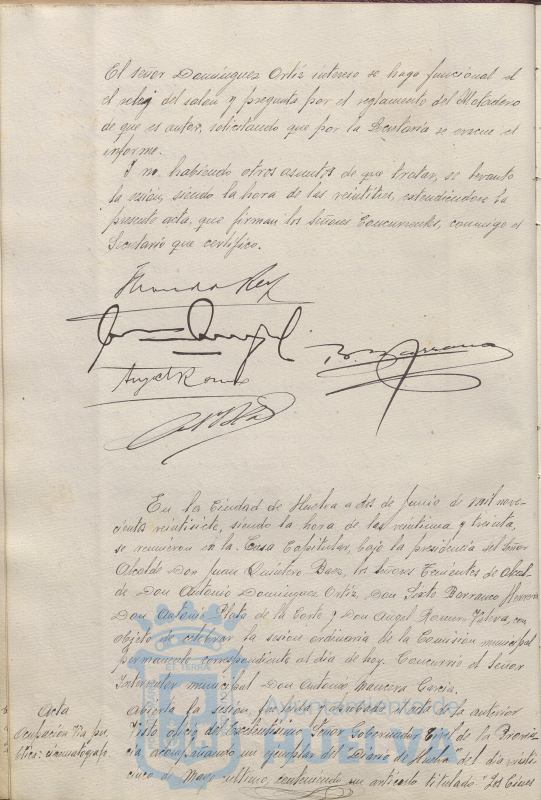 El señor Dominguez Ortiz intereso se haga funcional el
el reloj del salon y pregunta por el reglamento del Matadero
de que es autor, solicitando que por la Secretaria se evacue el
informe.
Y no habiendo otros asuntos de que tratar, se levanto
la sesion, siendo la hora de las veintitres, extendiendose la
presente acta, que firman los señores Concurrentes, conmigo el
Secretario que certifico.
En la Ciudad de Huelva a dos de Junio de mil nove-
cientos veintisiete, siendo la hora de las veintiuna y treinta,
se reunieron en la Casa Capitular, bajo la presidencia del Señor
Alcalde Don Juan Quintero Baez, los señores Tenientes de Alcal-
de Don Antonio Dominguez Ortiz, Don Sixto Barranco Herrera
Don Antonio Plata de la Corte y Don Angel Romero, con
objeto de celebrar la sesion ordinaria de la Comision municipal
permanente correspondiente al dia de hoy. Concurrio el señor
Interventor municipal Don Antonio Mancera Garcia.
Acta
Abierta la sesion, fue leida y aprobada el acta de la anterior
Ocupacion Via pu-
blica: cinematografo.
Visto oficio del Excelentisimo Señor Gobernador Civil de la Provin-
cia acompañando un ejemplar del "Diario de Huelva" del dia veinti-
cinco de Mayo ultimo, conteniendo un articulo titulado "Los Cines